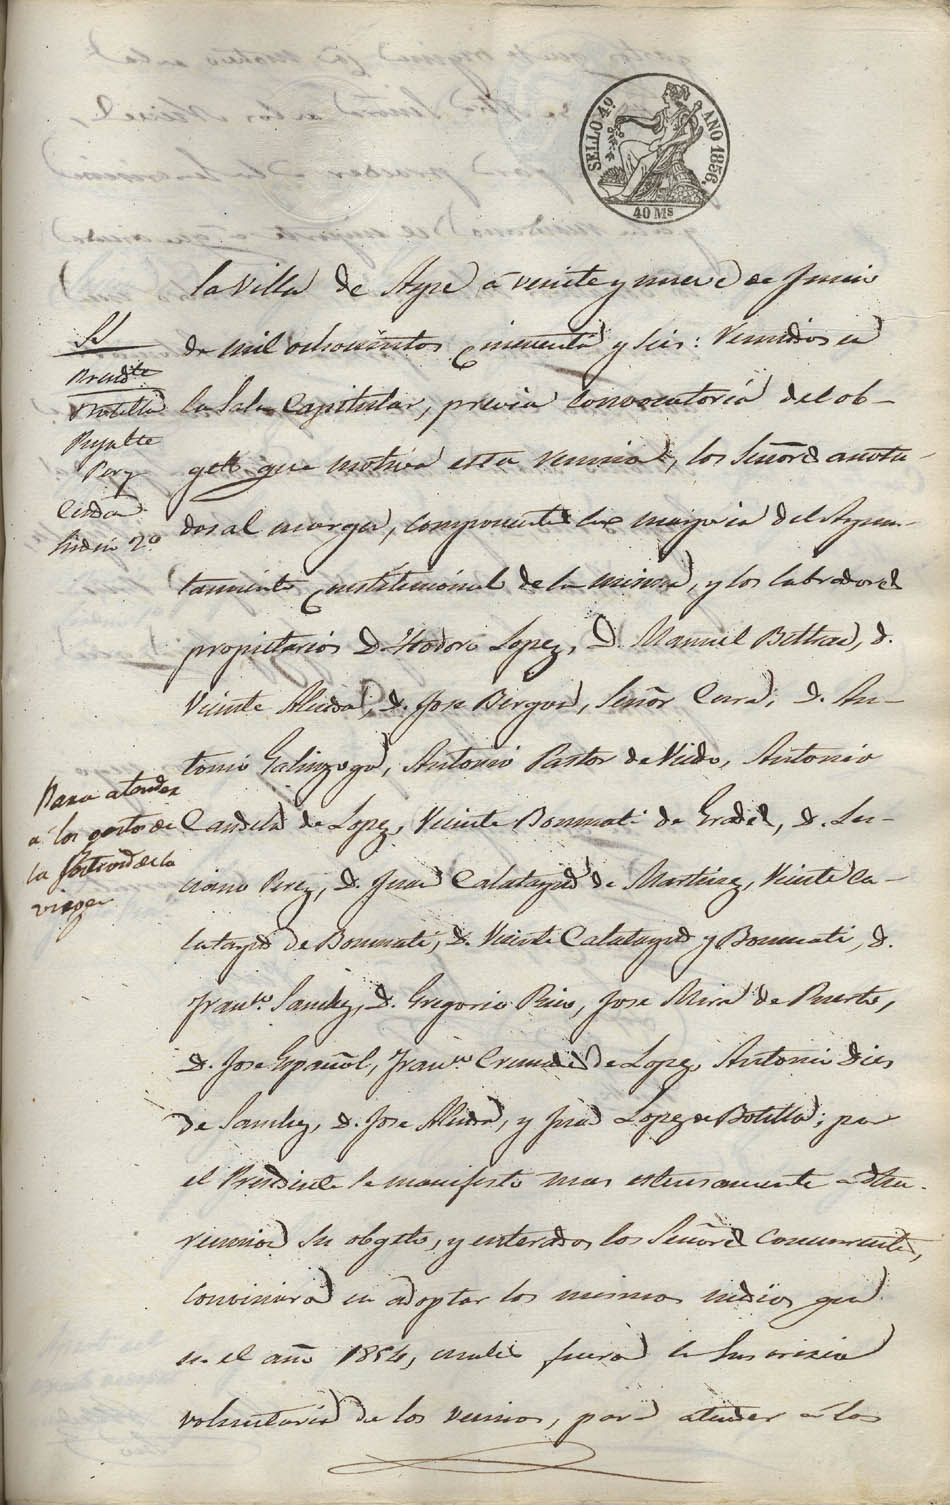 SELLO 4º AÑO 1856.
40 Ms
la Villa de Aspe á veinte y nueve de Junio
de mil ochocientos cincuenta y seis: Reunidos en
la Sala Capitular, previa convocatoria del ob-
geto que motiva esta reunion, los Señores anota-
dos al margen, componentes la mayoria del Ayun-
tamiento Constitucional de la misma, y los labradores
propietarios D. Teodoro Lopez, D. Manuel Beltran, D.
Vicente Alcida, D. Jose Berguer, Señor Cura, D. An-
tonio Galinzoga, Antonio Pastor de Vicido, Antonio
Candela de Lopez, Vicente Bonmati de Gradel, D. Lu-
ciano Perez, D. Juan Calatayud de Martinez, Vicente Ca-
latayud de Bonmati, D. Vicente Calatayud y Bonmati, D.
Franco. Sanchez, D. Gregorio Rico, Jose Mira de Puerto,
D. Jose Español, Franco. Cremades de Lopez, Antonio Dies
de Sanchez, D. Jose Alcida, y Juan Lopez de Botella; por
el Presidente se manifesto mas estensamente a dha.
reunion su obgeto, y enterados los Señores Concurrentes,
convinieron en adoptar los mismos medios que
en el año 1854, cuales fueron la suscricion
voluntaria de los vecinos, para atender á los
SS
Presidte
Botella
Pujalte
Perez
Cerdan
2º
Para atender
á los gastos de
la festivd de la
virgen